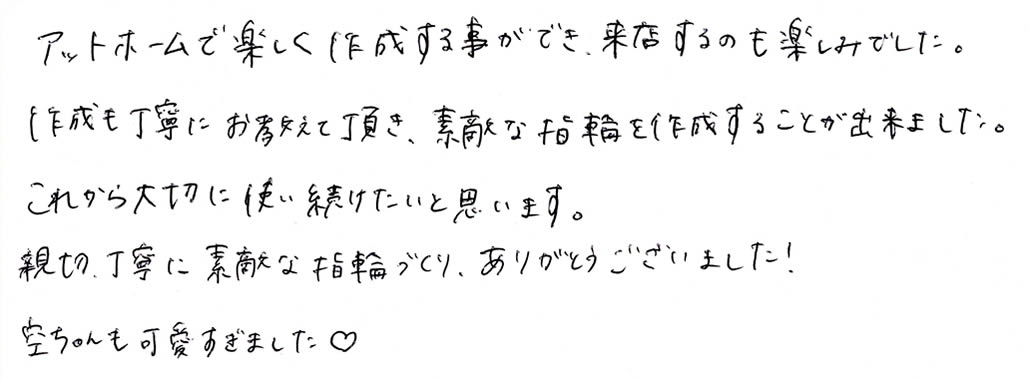 アットホームで楽しく作成する事ができ、来店するのも楽しみでした。
作成も丁寧にお教えて頂き、素敵な指輪を作成することが出来ました。
これから大切に使い続けたいと思います。
親切、丁寧に素敵な指輪づくり、ありがとうございました!
空ちゃんも可愛すぎました♡